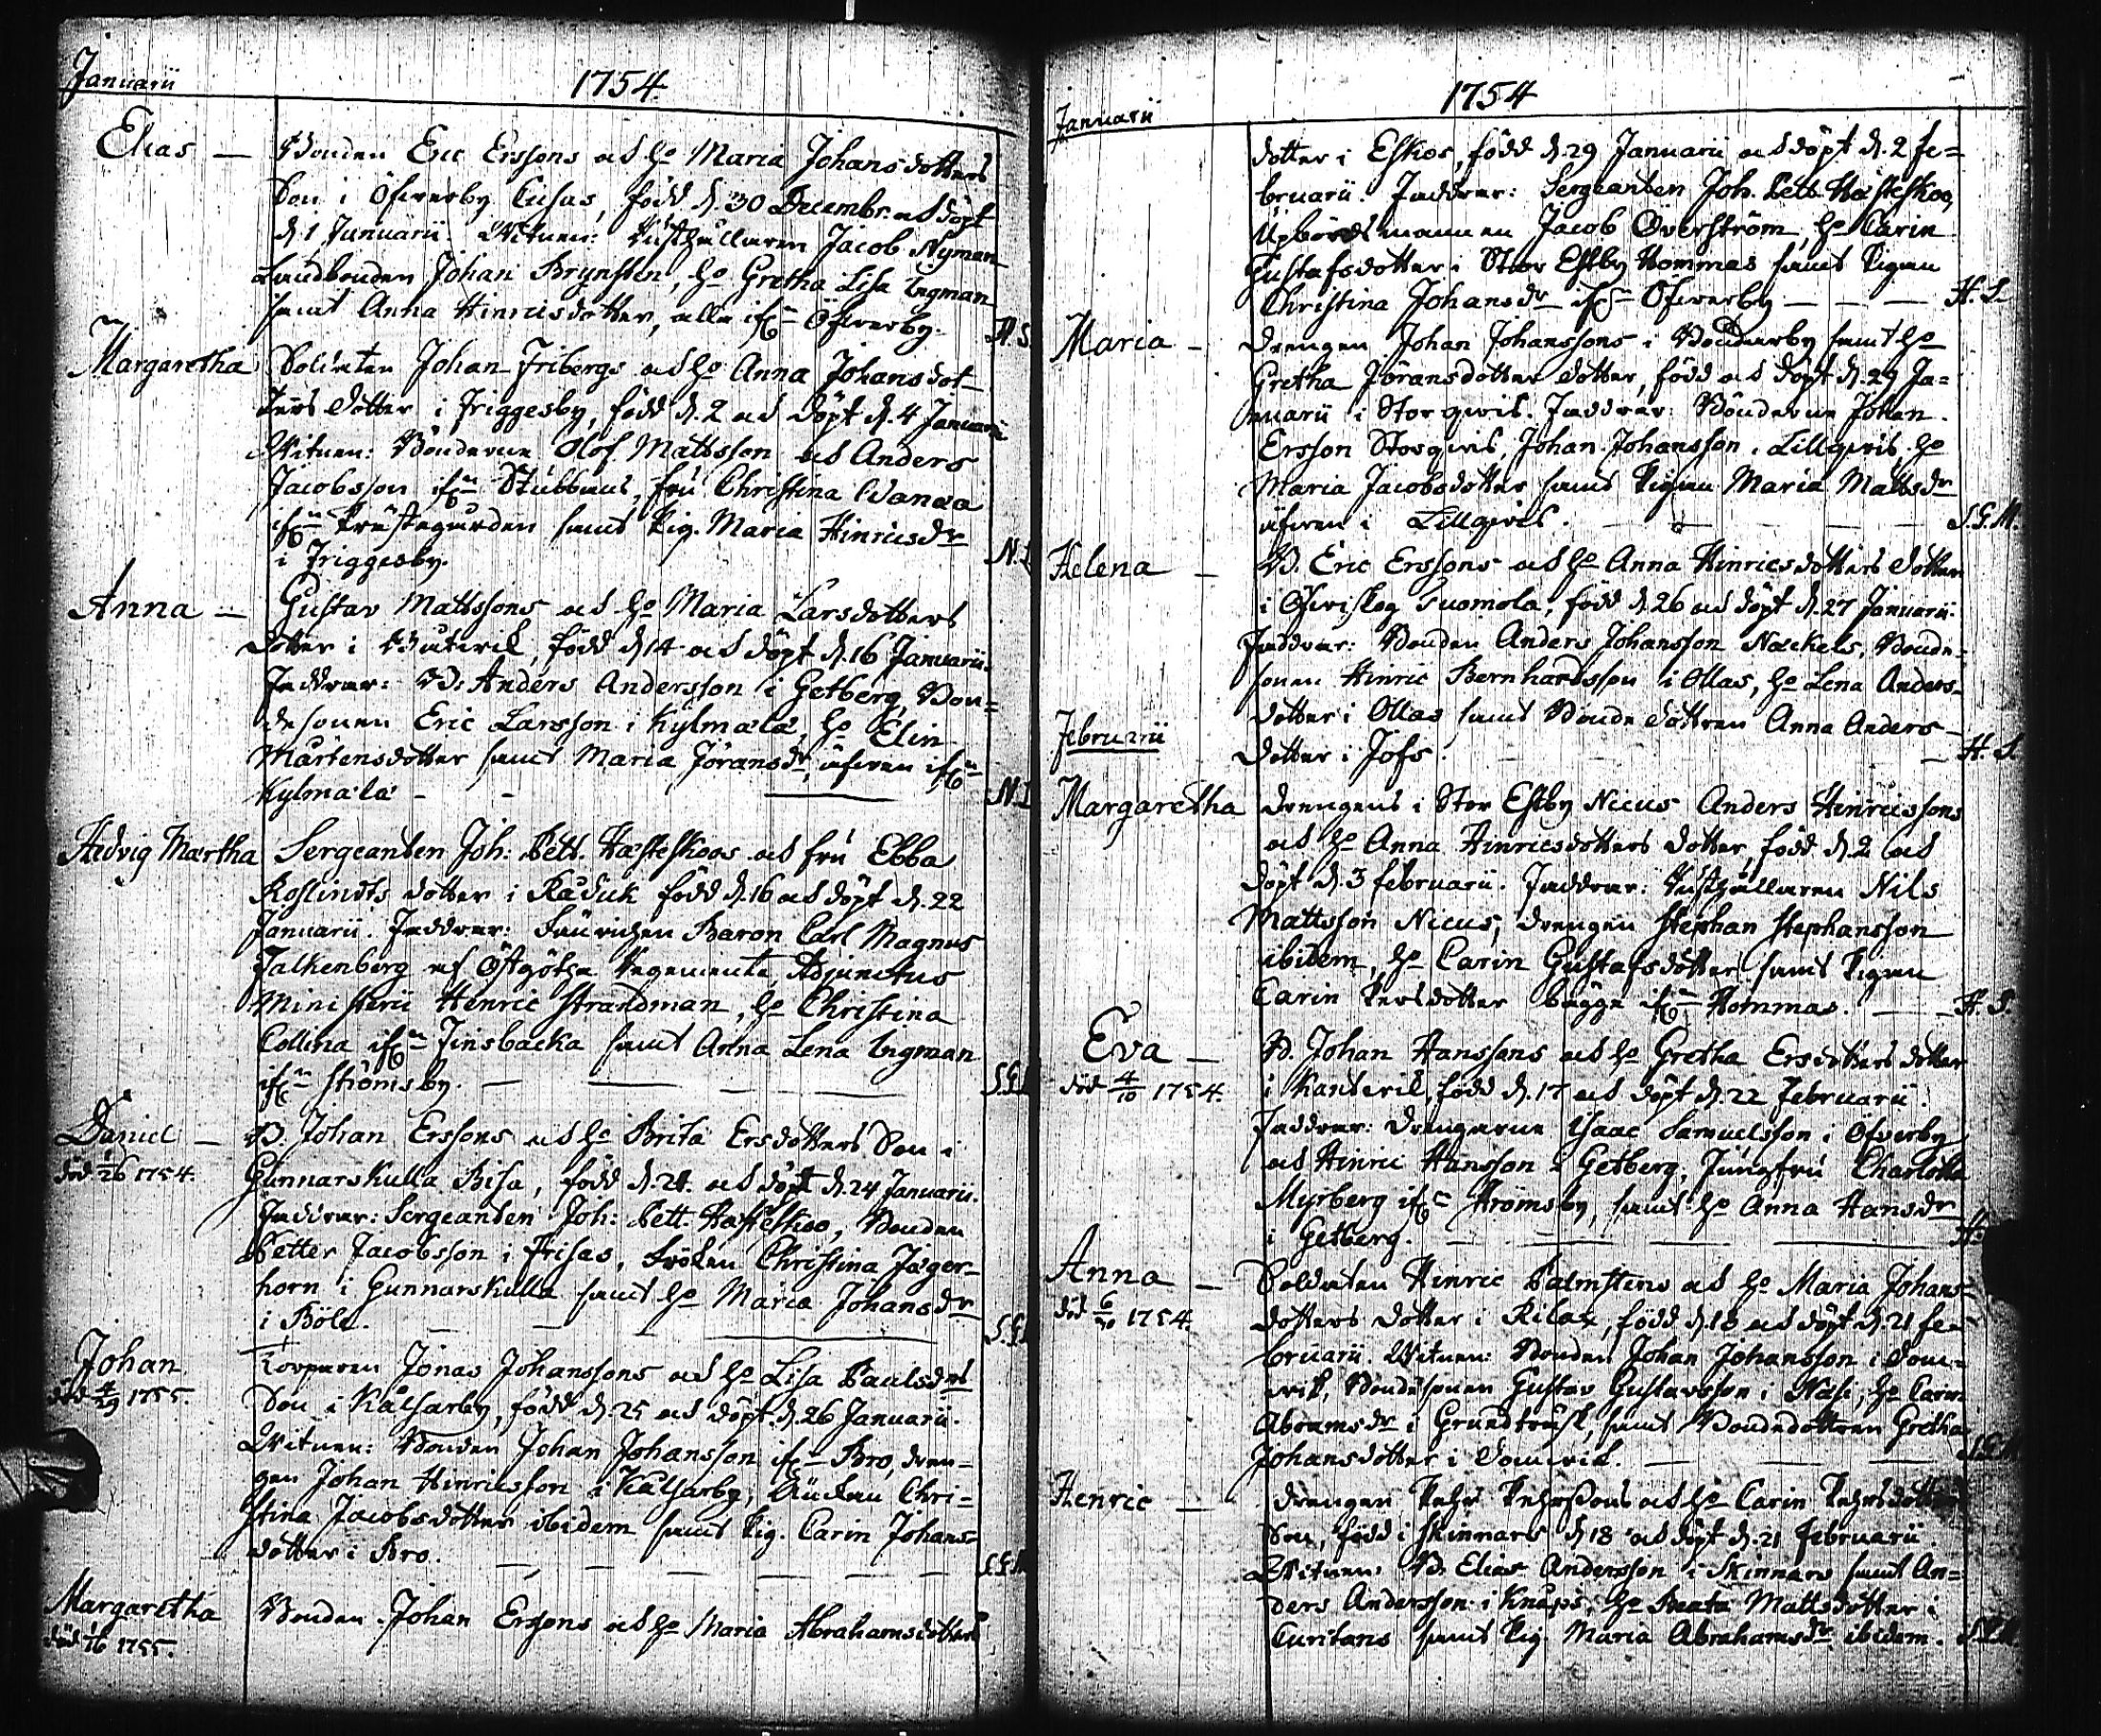 Januarii
1754
Elias — Bonden Eric Erssons och H:o Maria Johansdotters
Son i Öfwerby Cusas, född d. 30 Decembr. och döpt
d. 1 Januarii. Witnen: Rusthållaren Jacob Nyman
Landbonden Johan Brynsten, H:o Gretha Lisa Ingman
samt Anna Hinricsdotter, alla ifrn Öfwerby. H. S.
Margaretha Soldaten Johan Fribergs och H:o Anna Johansdot-
ters dotter i Friggesby, född d. 2 och döpt d. 4 Januarii
Witnen: Bönderne Olof Mattsson och Anders
Jacobsson ifrn Stubbeus, fru Christina Wanæa
ifrn Prästegården samt Pig. Maria Hinricsdr
i Friggesby. N. I
Anna — Gustav Mattssons och H:o Maria Larsdotters
dotter i, född d. 14 och döpt d. 16 Januarii.
Faddrar: B: Anders Andersson i Getberg, Bon-
desonen Eric Larsson i Kylmälä, H:o Elin
Mårtensdotter samt Maria Jöransdr, äfwen ifrn
Kylmälä — — N. I
Hedvig Martha Sergeanten Joh: Pett. Hästeskoos och fru Ebba
Roslindts dotter i Råduk född d. 16 och döpt d. 22
Januarii. Faddrar: Fänrichen Baron Carl Magnus
Falkenberg af Östgötha Regemente, Adjunctus
Ministerii Henric Strandman, H:o Christina
Collina ifrn Finsbacka samt Anna Lena Ingman
ifrn Strömsby. — — — S. G.
Daniel — B. Johan Erssons och H:o Brita Ersdotters Son i
död 1/26 1754. Gunnarskulla Bisa, född d. 21. och döpt d. 24 Januarii.
Faddrar: Sergeanten Joh: Pett. Hästeskoo, Bonden
Petter Jacobsson i Frisas, Fröken Christina Jäger-
horn i Gunnarskulla samt H:o Maria Johansdr
i Böle. — — — S. G.
Johan Torparen Jonas Johanssons och H:o Lisa Paulsdrs
död 4/29 1755. Son i Kälsarby, född d. 25 och döpt d. 26 Januarii.
Witnen: Bonden Johan Johansson ifrn Bro, dren-
gen Johan Hinricsson i Kälsarby, Änckan Chri-
stina Jacobsdotter ibidem samt Pig. Carin Johans-
dotter i Bro. — — — S. G. M.
Margaretha Bonden Johan Erssons och H:o Maria Abrahamsdotters
död 1/16 1755.
1754
Januarii
dotter i Eskos, född d. 29 Januarii och döpt d. 2 Fe-
bruarii. Faddrar: Sergeanten Joh. Pett. Hästeskoo,
Upbördsmannen Jacob Överström, H:o Carin
Gustafsdotter i Stor Estby Hommas samt Pigan
Christina Johansdr ifrn Öfwerby — — — H. S.
Maria — Drengen Johan Johanssons i Bondarby samt H:o
Gretha Jöransdotter dotter, född och döpt d. 29 Ja-
nuarii i Storqwis. Faddrar: Bönderne Johan
Ersson Storqwis, Johan Johansson Lillqwis, H:o
Maria Jacobsdotter samt Pigan Maria Mattsdr
äfwen i Lillqwis. — — — S. G. M.
Helena — B. Eric Erssons och H:o Anna Hinricsdotters dotter
i Öfwiskog Tuomola, född d. 26 och döpt d. 27 Januarii.
Faddrar: Bonden Anders Johansson Näckels, Bonde-
sonen Hinric Bernhardsson i Ollas, H:o Lena Anders-
dotter i Ollas samt Bonde dottren Anna Anders-
dotter i Jofs. — — — H. S.
Februarii
Margaretha Drengens i Stor Estby Nicus Anders Hinricssons
och H:o Anna Hinricsdotters dotter, född d. 2 och
döpt d. 3 februarii. Faddrar: Rusthållaren Nils
Mattsson Nicus, drengen Stephan Stephansson
ibidem, H:o Carin Gustafsdotter samt Pigan
Carin Persdotter bägge ifrn Hommas. — — H. S.
Eva — B. Johan Hanssons och H:o Gretha Ersdotters dotter
död 4/10 1754. i Kantevik, född d. 17 och döpt d. 22 Februarii.
Faddrar: Drengarne Isaac Samuelsson i Öfverby
och Hinric Hansson i Getberg, Jungfru Charlotta
Myrberg ifrn Strömsby, samt H:o Anna Hansdr
i Getberg. — — — H.
Anna — Soldaten Hinric Palmstens och H:o Maria Johans-
död 6/20 1754. dotters dotter i Rilax, född d. 18 och döpt d. 21 fe-
bruarii. Witnen: Bonden Johan Johansson i Dom-
wik, Bondesonen Gustav Gustavsson i Näse, H:o Carin
Abramsdr i Grundträsk, samt Bondedottren Gretha
Johansdotter i Domwik. — — — S. G. M
Henric — Drengen Pehr Pehrssons och H:o Carin Pehrsdotters
Son, född i Skinnars d. 18 och döpt d. 21 februarii.
Witnen: B. Elias Andersson i Skinnars samt An-
ders Andersson i Knaps, H:o Beata Mattsdotter i
Curitans samt Pig. Maria Abrahamsdr ibidem. S. G. M.